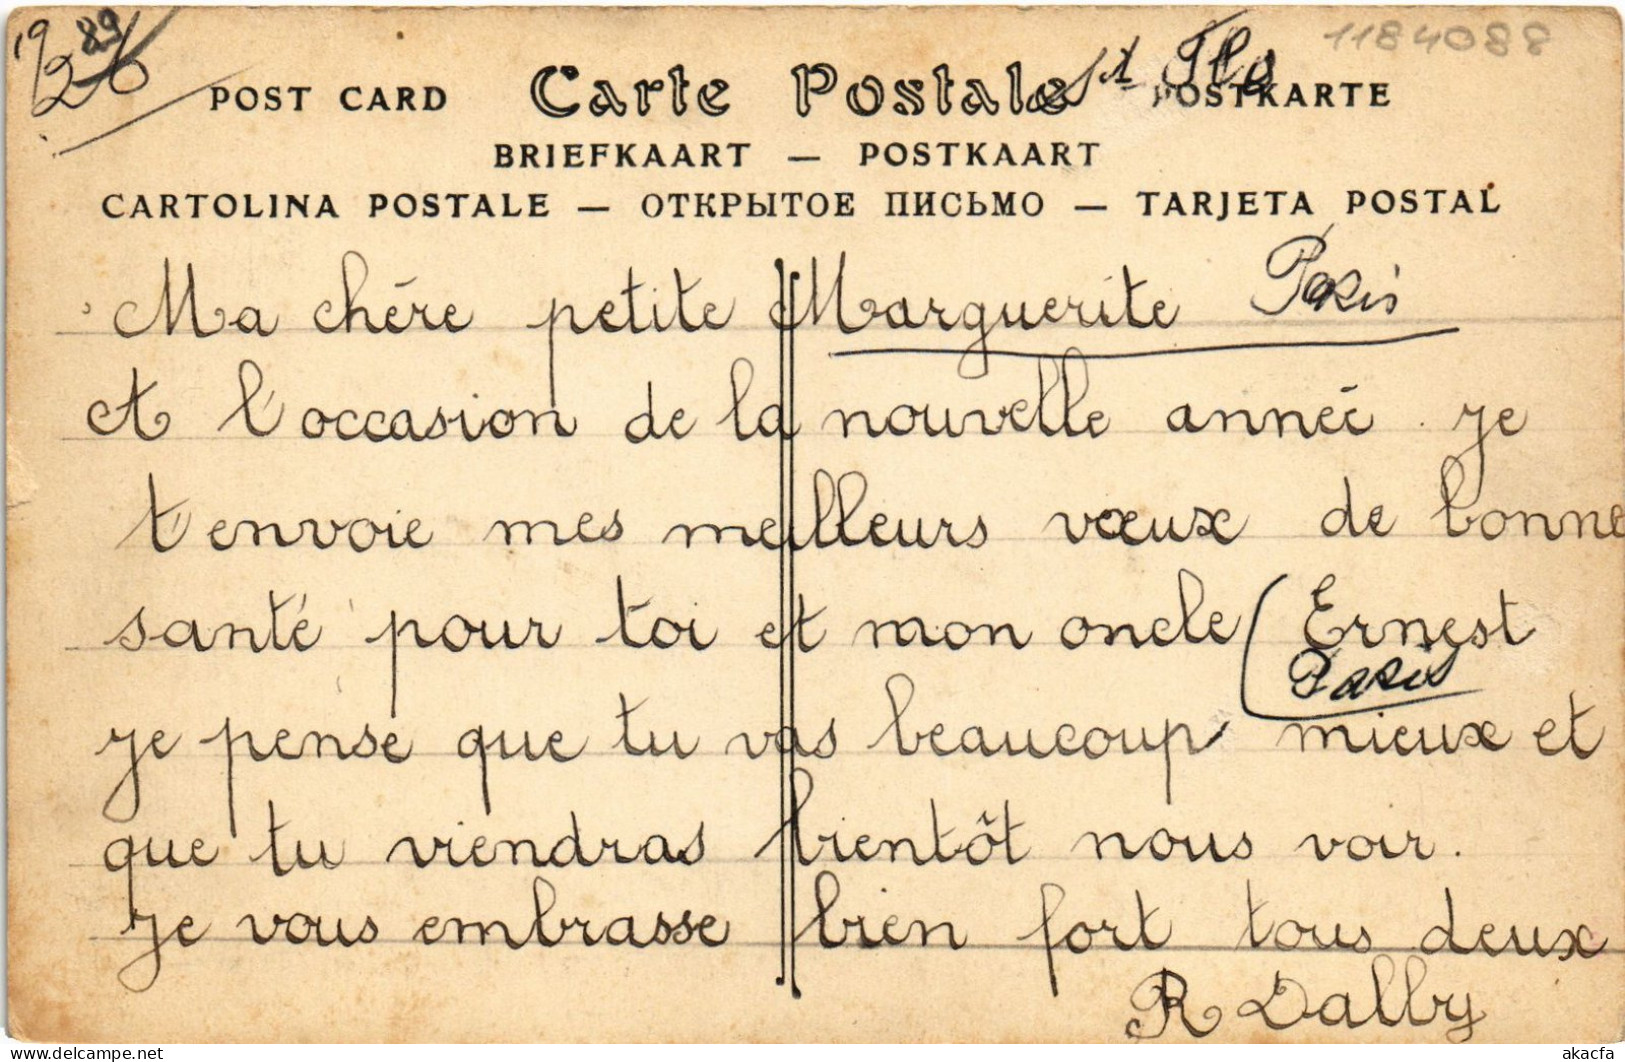 1926
89
1184088
St Flo
POST CARD Carte Postale POSTKARTE
BRIEFKAART — POSTKAART
CARTOLINA POSTALE — ОТКРЫТОЕ ПИСЬМО — TARJETA POSTAL
Ma chère petite Marguerite Paris
A l'occasion de la nouvelle année je
t'envoie mes meilleurs vœux de bonne
santé pour toi et mon oncle ( Ernest
Paris
je pense que tu vas beaucoup mieux et
que tu viendras bientôt nous voir.
Je vous embrasse bien fort tous deux
R Dalby
akacfa